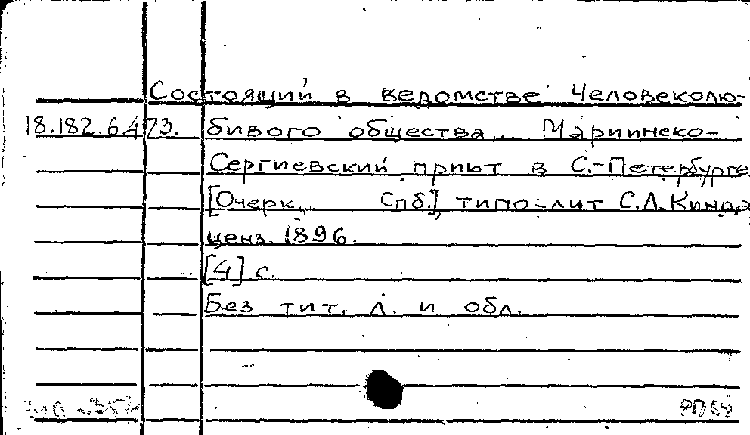 Состоящий в ведомстве Человеколю-
18.182.6.473. бивого общества Мариинско-
Сергиевский приют в С.-Петербурге
[Очерк. Спб.], типо-лит С.Л.Кинда,
ценз. 1896.
[4] с.
Без тит. л. и обл.